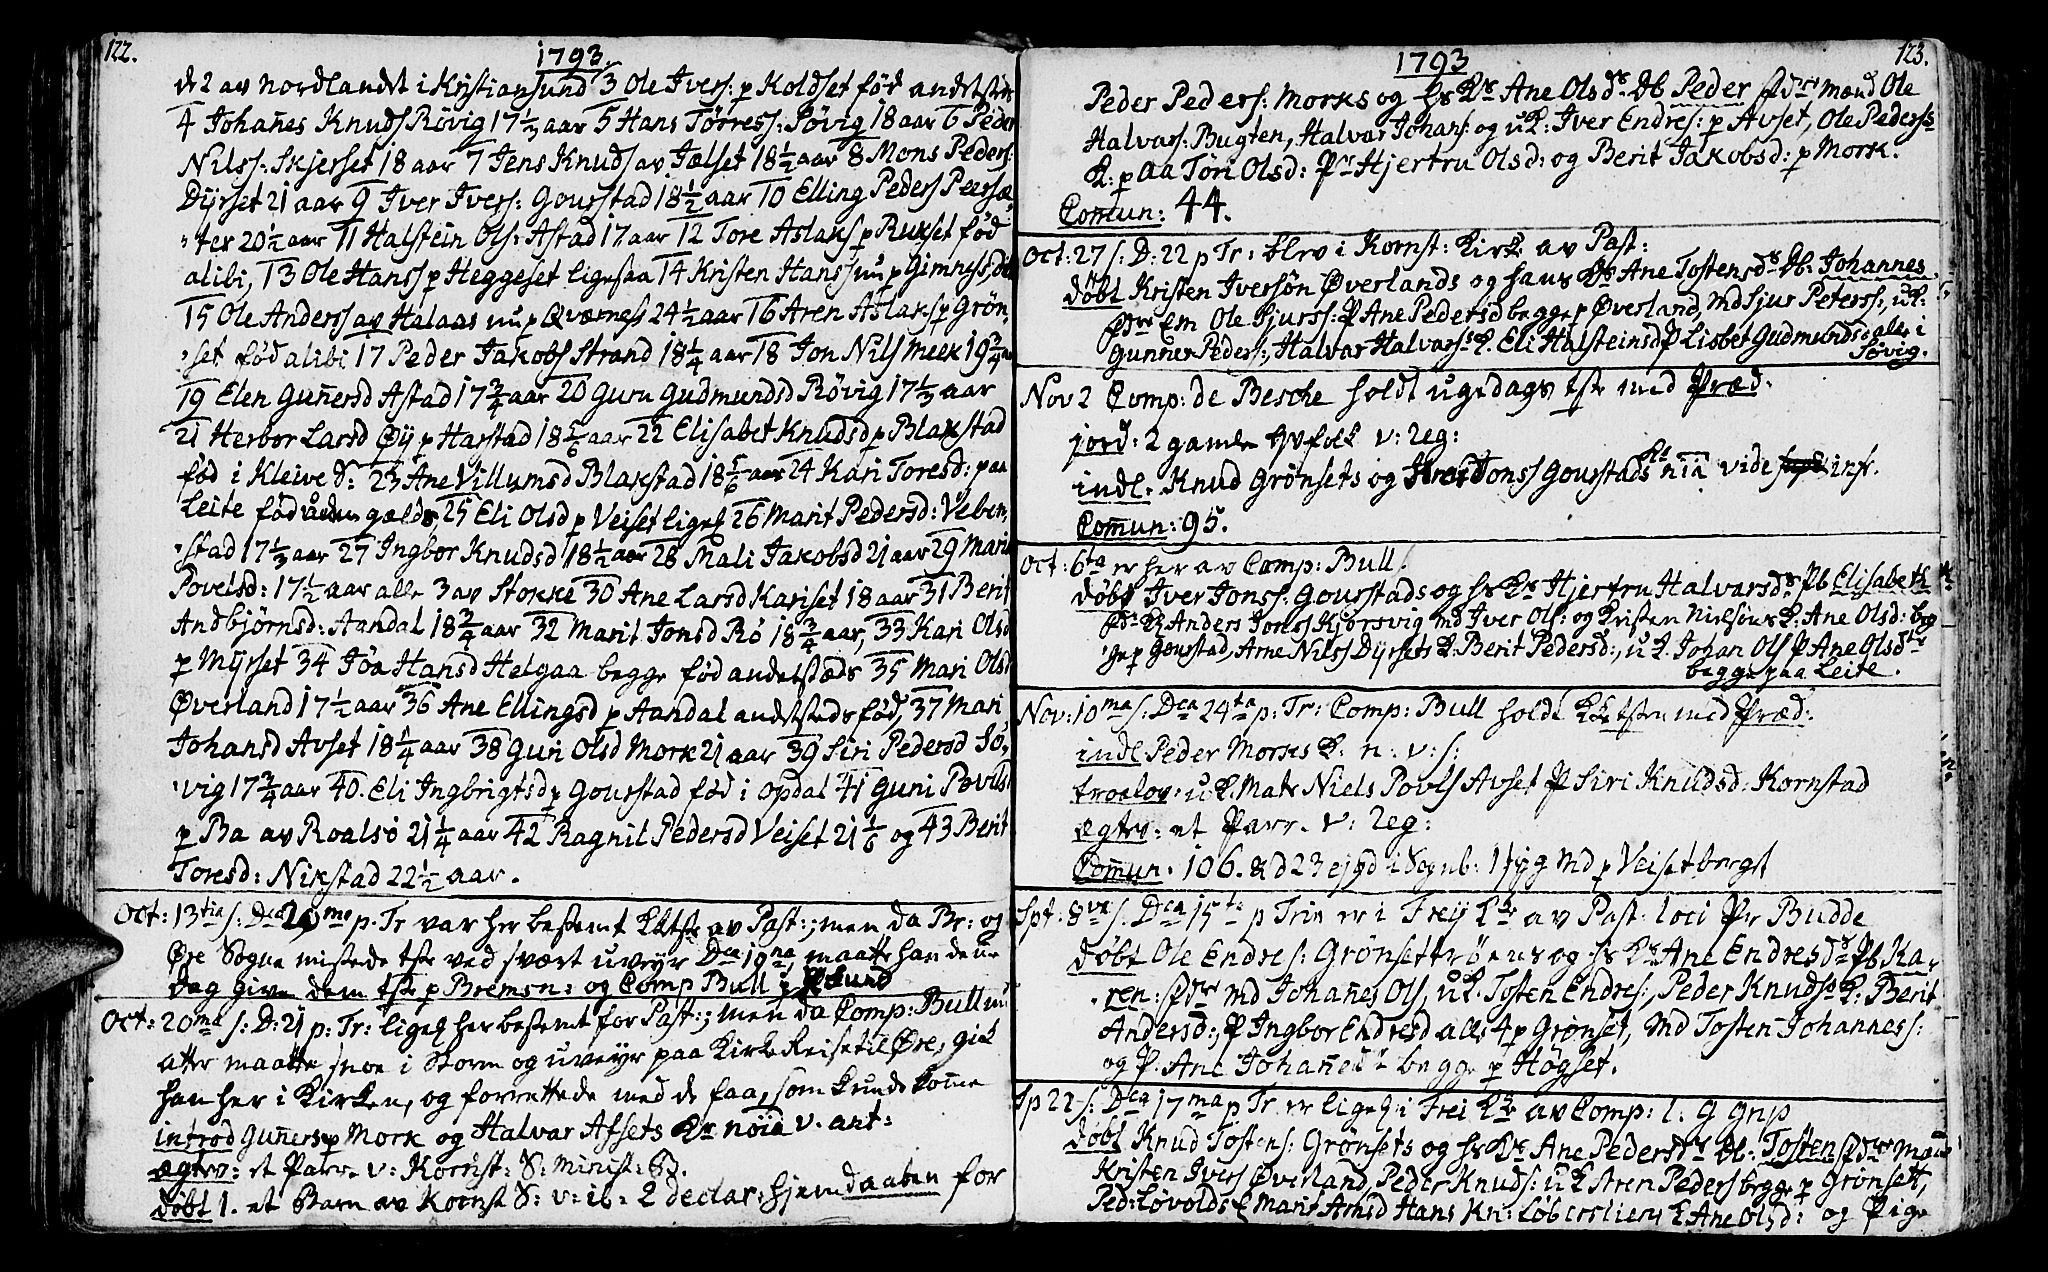 122.
1793.
de 2 av Nordlandet i Kristiansund 3 Ole Ivers: p Koldset fød andetsteds
4 Johan̄es Knuds Røvig 17 1/3 aar 5 Hans Tørress: Søvig 18 aar 6 Peder
Nilss: Skjerset 18 aar 7 Jens Knuds av Jælset 18 1/2 aar 8 Mons Peders:
Dyrset 21 aar 9 Iver Ivers: Gourstad 18 1/2 aar 10 Elling Peders Peersæ,,
,,ter 20 1/2 aar 11 Halstein Ols: Astad 17 aar 12 Tore Aslaks p Rukset fød
alibi, 13 Ole Hanss p Heggeset ligesaa 14 Kristen Hanss nu p Gimnes
15 Ole Anderss av Halaas nu p Qværness 24 1/2 aar 16 Aren Aslaks p Grøn,
,,set fød alibi 17 Peder Jakobs Strand 18 1/4 aar 18 Jon Nils Meek 19 3/4
19 Elen Gun̄ersd Astad 17 3/4 aar 20 Guru Gudmundsd Røvig 17 1/3 aar
21 Herbor Larsd Øy p Harstad 18 5/6 aar 22 Elisabet Knudsd p Blakstad
fød i Kleive S: 23 Ane Villumsd Blakstad 18 5/6 aar 24 Kari Toresd: paa
Leite fød uden gælds 25 Eli Olsd p Veiset liges 26 Marit Pedersd: Veben,
,,stad 17 1/3 aar 27 Ingbor Knudsd 18 1/2 aar 28 Mali Jakobsd 21 aar 29 Mari
Povelsd: 17 1/2 aar alle 3 av Stokke 30 Ane Larsd Kariset 18 aar 31 Berit
Andbjørnsd: Aandal 18 3/4 aar 32 Marit Jonsd Rø 18 3/4 aar, 33 Kari Olsd
p Myrset 34 Jøa Hansd Helgaa begge fød andetstæds 35 Mari Olsd
Øverland 17 1/2 aar 36 Ane Ellingsd p Aandal andetsteds fød, 37 Mari
Johansd Avset 18 1/4 aar 38 Guri Olsd Mork 21 aar 39 Siri Pedersd Sø,
,,vig 17 3/4 aar 40. Eli Ingbrigtsd p Gourstad fød i Opdal 41 Guni Povils
p Ba av Roalsø 21 1/4 aar 42 Ragnil Pedersd Veiset 21 1/6 og 43 Berit
Toresd: Nikstad 22 1/2 aar.
Oct: 13 s: Dca 20 p. Tr var her bestemt av Past:; men da Br: og
Øre Sogne mistede tste ved svært uveyr Dca 19na maatte han denne
Dag give dem tste p Bremsn: og Comp Bull p
Oct: 20ma s: D: 21 p: Tr: liges her bestemt for Past:; men da Comp: Bull nu
atter maatte snoe i Storm og uveyr paa Kirke Reise til Øre, gik
han her i Kirken, og forrettede med de faa, som kunde kom̄e
introd Gun̄ers p Mork og Halvar Afsets noia v. ant:
ægtev: et Parr v: Kornst: S: minist:
døbt 1. et Barn av Kornst S: v: ib: 2 declar: hjemdaaben for
123.
1793
Peder Peders: Morks og hs Ane Olsds Db Peder mænd Ole
Halvars: Bugten, Halvar Johans: og uK: Iver Endres: p Avset, Ole Pederss
K: p Aa Tøri Olsd: Hjertru Olsd: og Berit Jakobsd: p Mork.
Com̄un: 44.
Oct: 27 s: D: 22 p Tr: blev i Kornst: Kirke av Past:
døbt Kristen Iversøn Øverlands og hans Ane Tostensds Johannes
Em Ole Sjurss: P Ane Pedersd begge p Øverland, md Sjur Peterss:, uK:
Gunner Peders:, Halvar Halvarss K. Eli Halsteinsd P Lisbet Gudmundsd alle i
Søvig.
Nov 2 Comp: de Besche holdt ugedags tste med Præd.
jord: 2 gamle v: Reg:
indl. Knud Grønsets og Jonss Gourstads nia vide infr.
Com̄un: 95.
Oct: 6ta er her av Comp: Bull
døbt Iver Jonss: Gourstads og hs Hjertru Halvarsds Pb Elisabeth
Anders Jonss Kjørsvig md Iver Ols: og Kristen Nielsøns K: Ane Olsd: beg
ge p Gourstad, Arne Nilss Dyrsets K. Berit Pedersd:, uK Johan Ols P Ane Olsd
begge paa Leite.
Nov: 10ma s: Dca 24ta p: Tr: Comp: Bull holdt med Præd:
indl Peder Morks K: n: v: s:
trolov: uK. Matr Niels Povls Avset P Siri Knudsd: Kornstad
ægtv: et Parr. v: Reg:
Com̄un. 106. &d 23 i Sognb: 1 Md p Veisetbergt
Spt: 8va s: Dca 15ta p Trin er i Frey av Past: loci Hr Budde
døbt Ole Endres: Grønsettrøens og hs Ane Endresds Pb Ka,
,,ren: Md Johan̄es Ols, uK. Tosten Endres:, Peder Knudss K: Berit
Andersd:, P Ingbor Endresd alle 4 p Grønset, Md Tosten Johanness:
og P. Ane Johan̄esd begge p Høgset.
Sp 22 s: Dca 17ma p Tr er liges i Frei av Comp: l:
døbt Knud Tostens: Grønsets og hs Ane Pedersds Tosten
Kristen Ivers Øverland, Peder Knuds: uK Peders begge p Grønsett,
Ped: Løvolds K Marit Arnsd Hans Kn: K Ane Olsd: og Pige